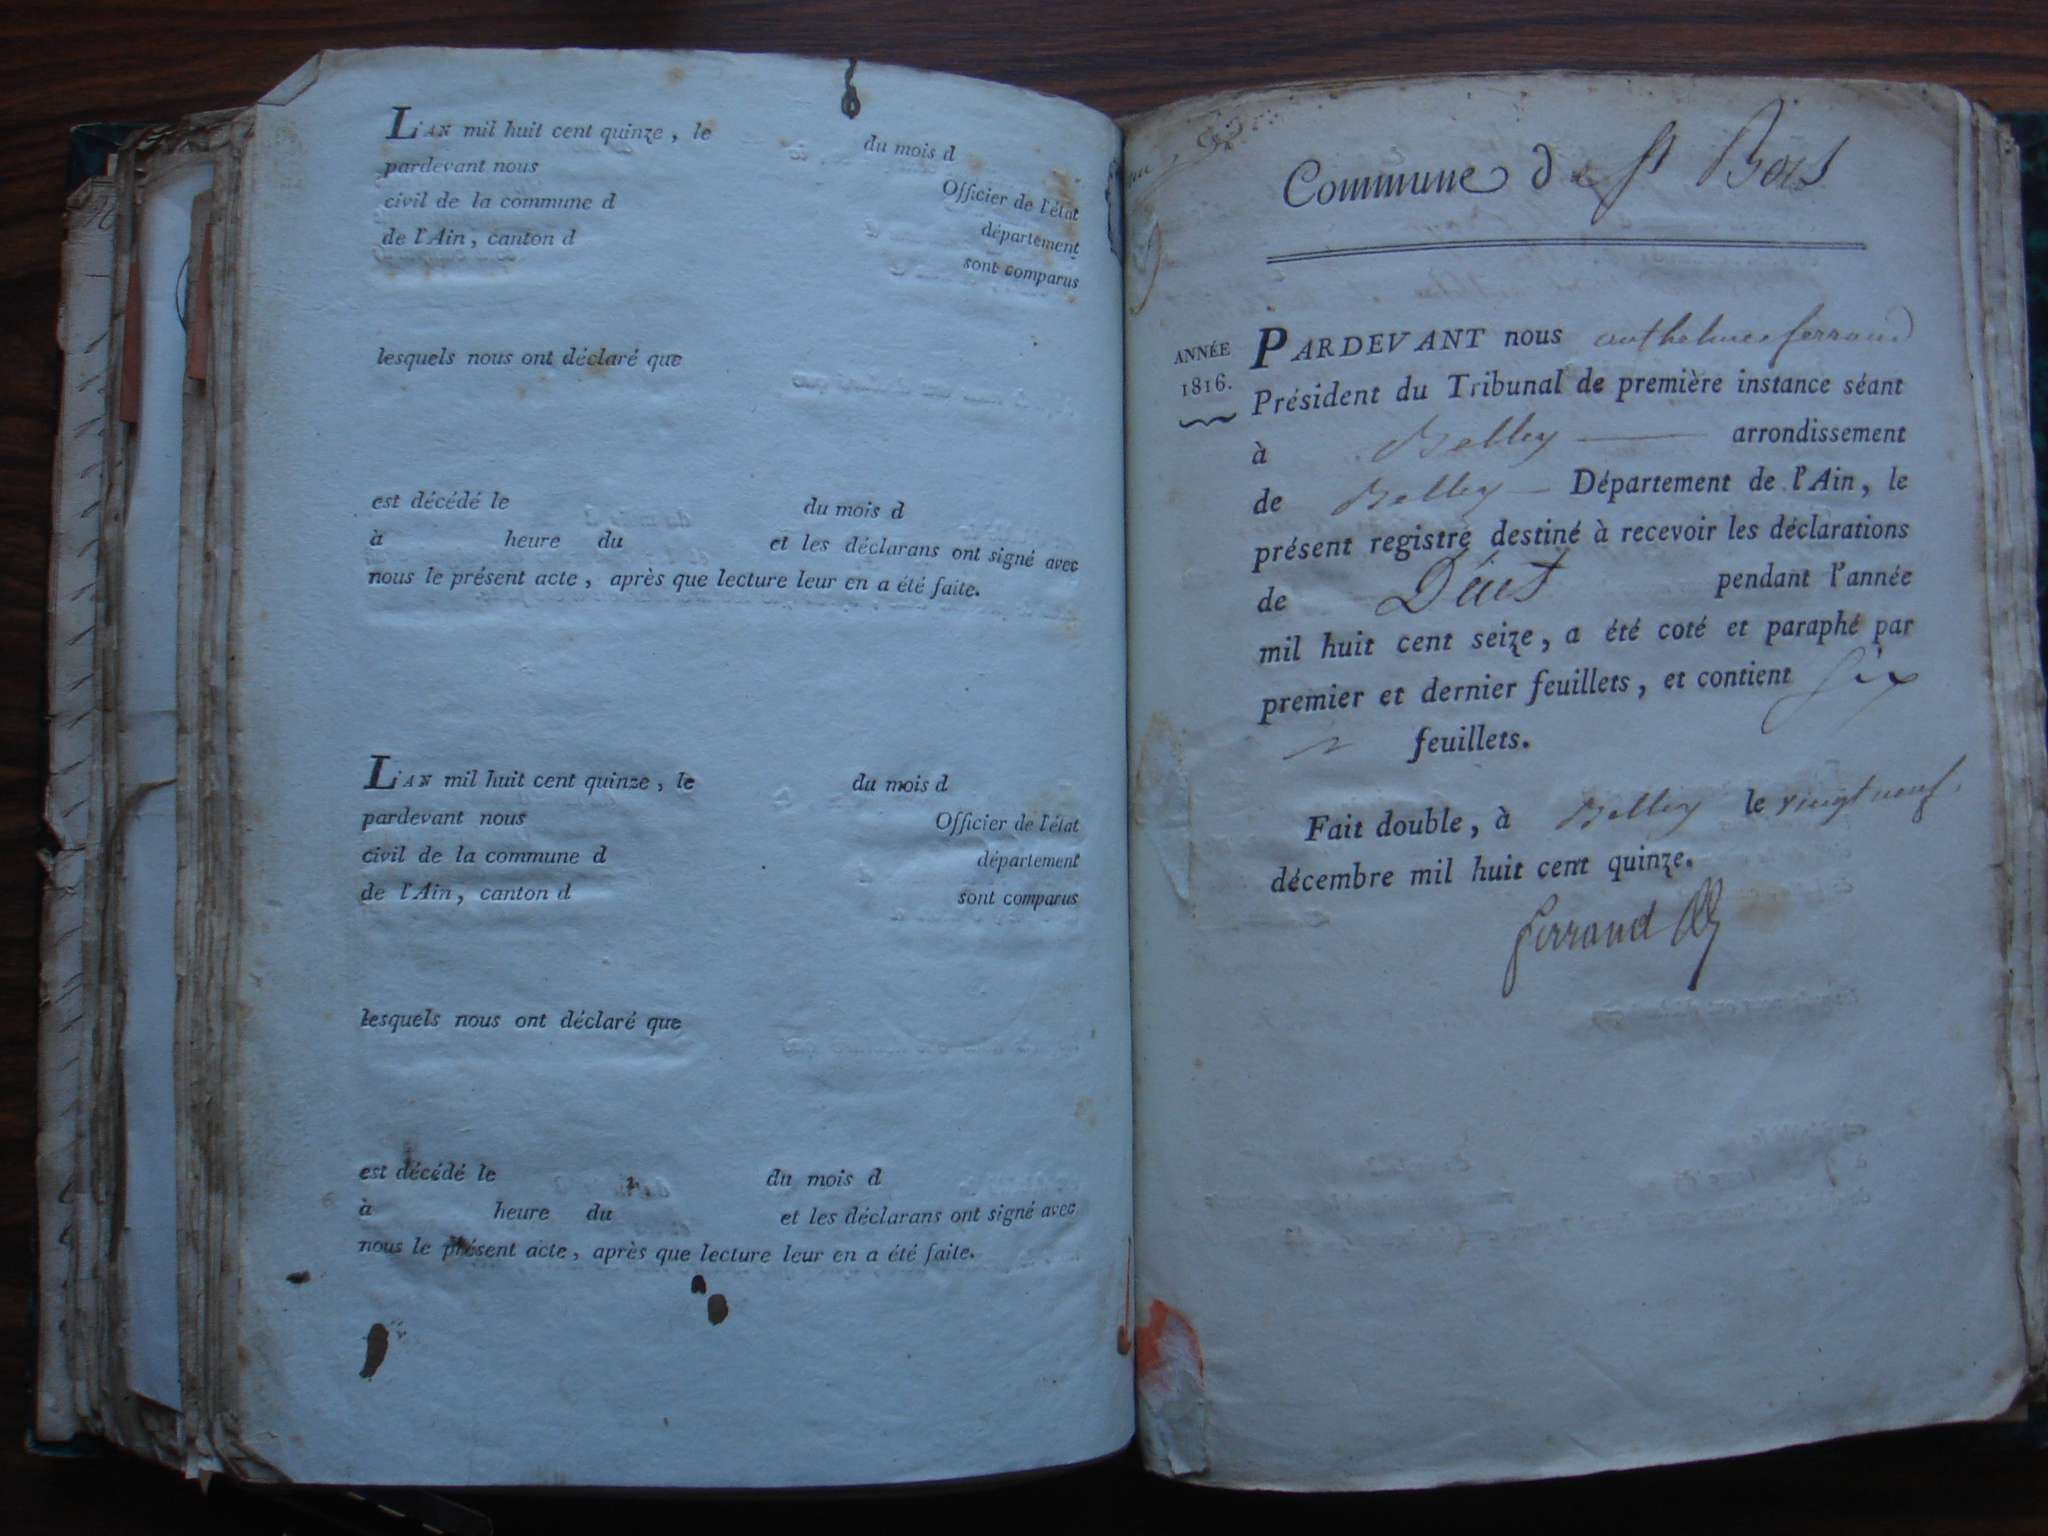 L'AN mil huit cent quinze, le du mois d
pardevant nous Officier de l'état
civil de la commune d département
de l'Ain, canton d sont comparus
lesquels nous ont déclaré que
est décédé le du mois d
à heure du et les déclarans ont signé avec
nous le présent acte, après que lecture leur en a été faite.
L'AN mil huit cent quinze, le du mois d
pardevant nous Officier de l'état
civil de la commune d département
de l'Ain, canton d sont comparus
lesquels nous ont déclaré que
est décédé le du mois d
à heure du et les déclarans ont signé avec
nous le présent acte, après que lecture leur en a été faite.
Commune de St Bois
ANNÉE
1816.
PARDEVANT nous anthelme ferrand
Président du Tribunal de première instance séant
à Belley arrondissement
de Belley Département de l'Ain, le
présent registre destiné à recevoir les déclarations
de Décès pendant l'année
mil huit cent seize, a été coté et paraphé par
premier et dernier feuillets, et contient Six
feuillets.
Fait double, à Belley le vingt neuf
décembre mil huit cent quinze.
ferrand